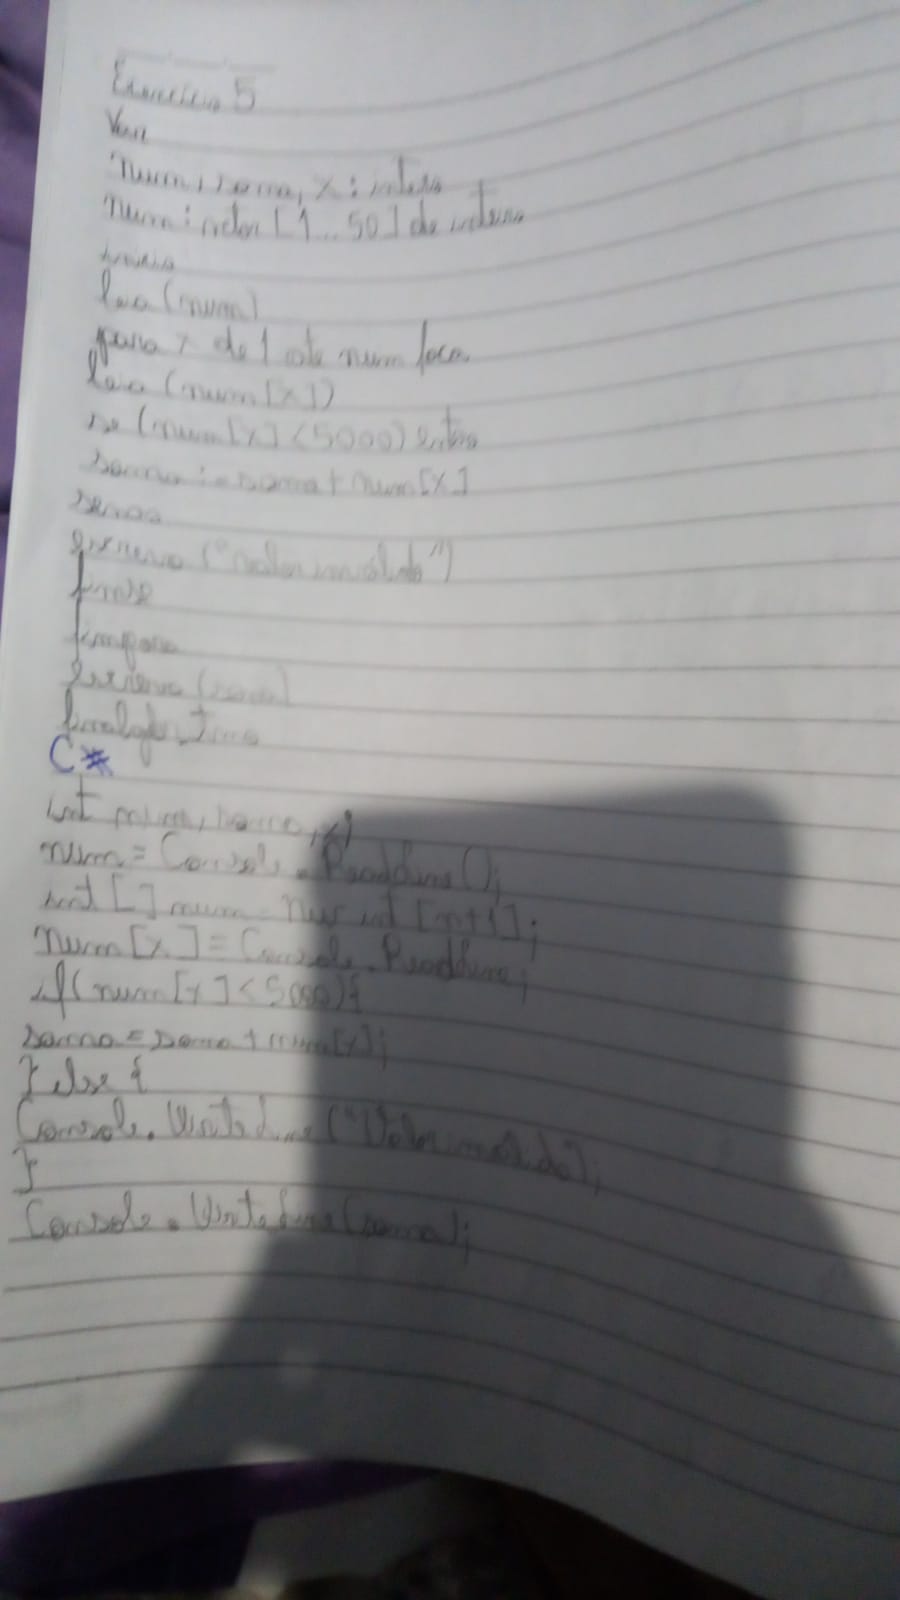 Exercício 5
Var
num, soma, x: inteiro
num: vetor [1..50] de inteiro
inicio
leia (num)
para x de 1 ate num faca
leia (num[x])
se (num[x] < 5000) entao
soma := soma + num[x]
senao
escreva ("valor inválido")
fimse
fimpara
escreva (soma)
fimalgoritmo
C#
int num, soma, x;
num = Console.ReadLine();
int [] num = new int [n+1];
num [x] = Console.ReadLine;
if (num [x] < 5000) {
soma = soma + num[x];
} else {
Console.WriteLine ("Valor inválido);
}
Console.WriteLine (soma);